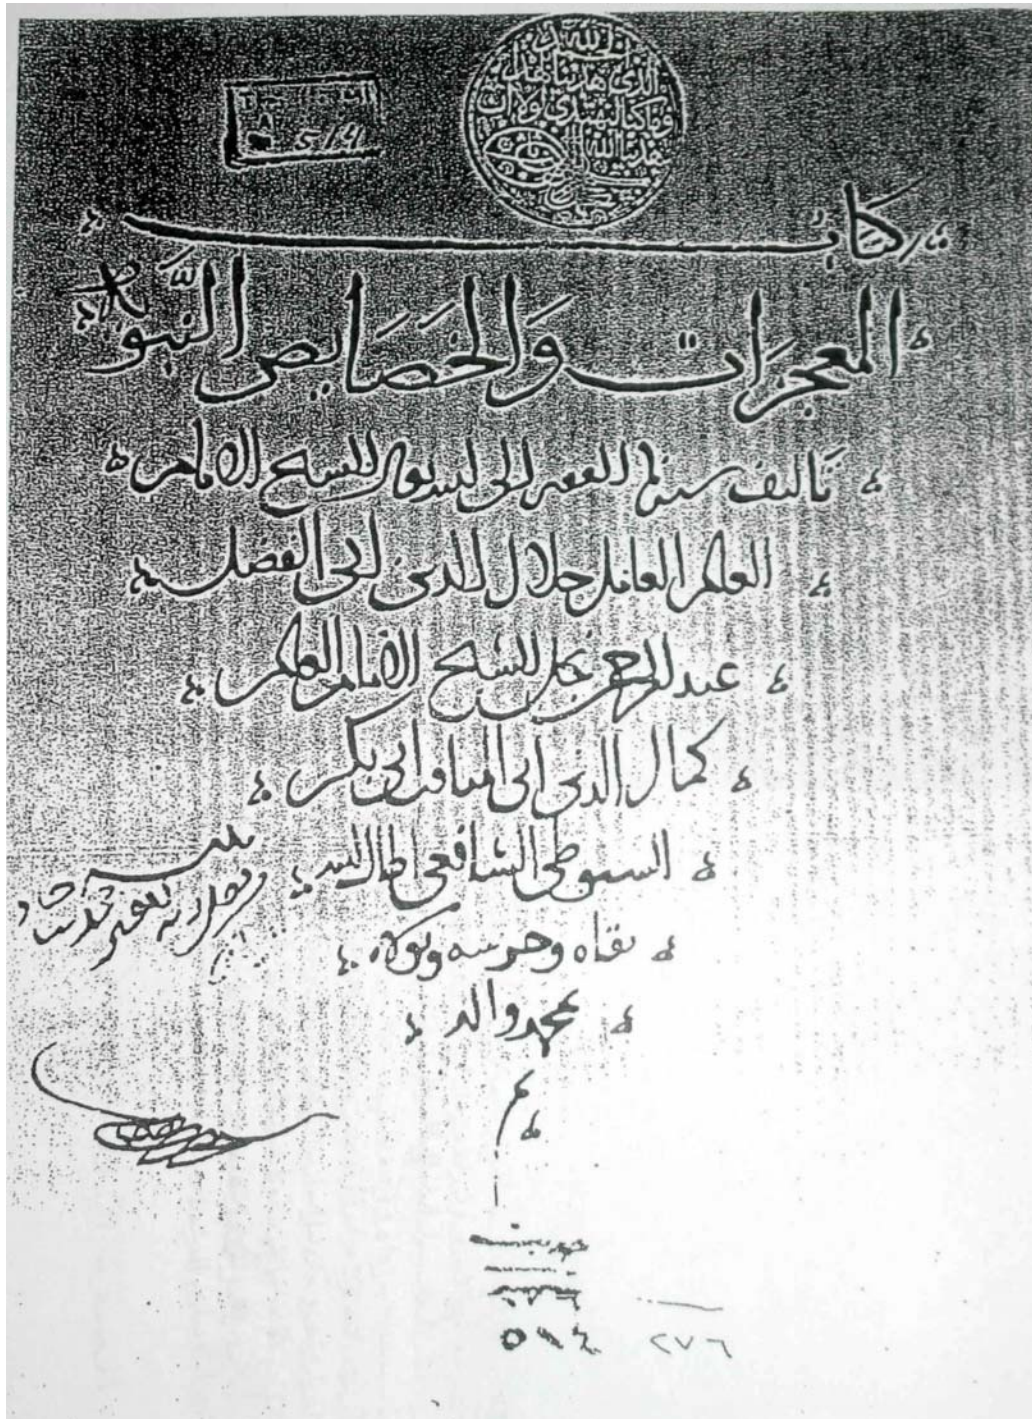 الحمد لله
الذي هدينا لهذا
وما كنا لنهتدي لولا ان
هدينا الله
5/4
كتاب
المعجزات والخصايص النبوية
تاليف سيدنا الفقير الى الله تعالى الشيخ الامام
العالم العامل جلال الدين ابي الفضل
عبد الرحمن نجل الشيخ الامام العالم
كمال الدين ابي المناقب ابي بكر
السيوطي الشافعي اطال الله
بقاه وحرسه وتولاه
بمحمد واله
م
٥١٤
٢٧٦